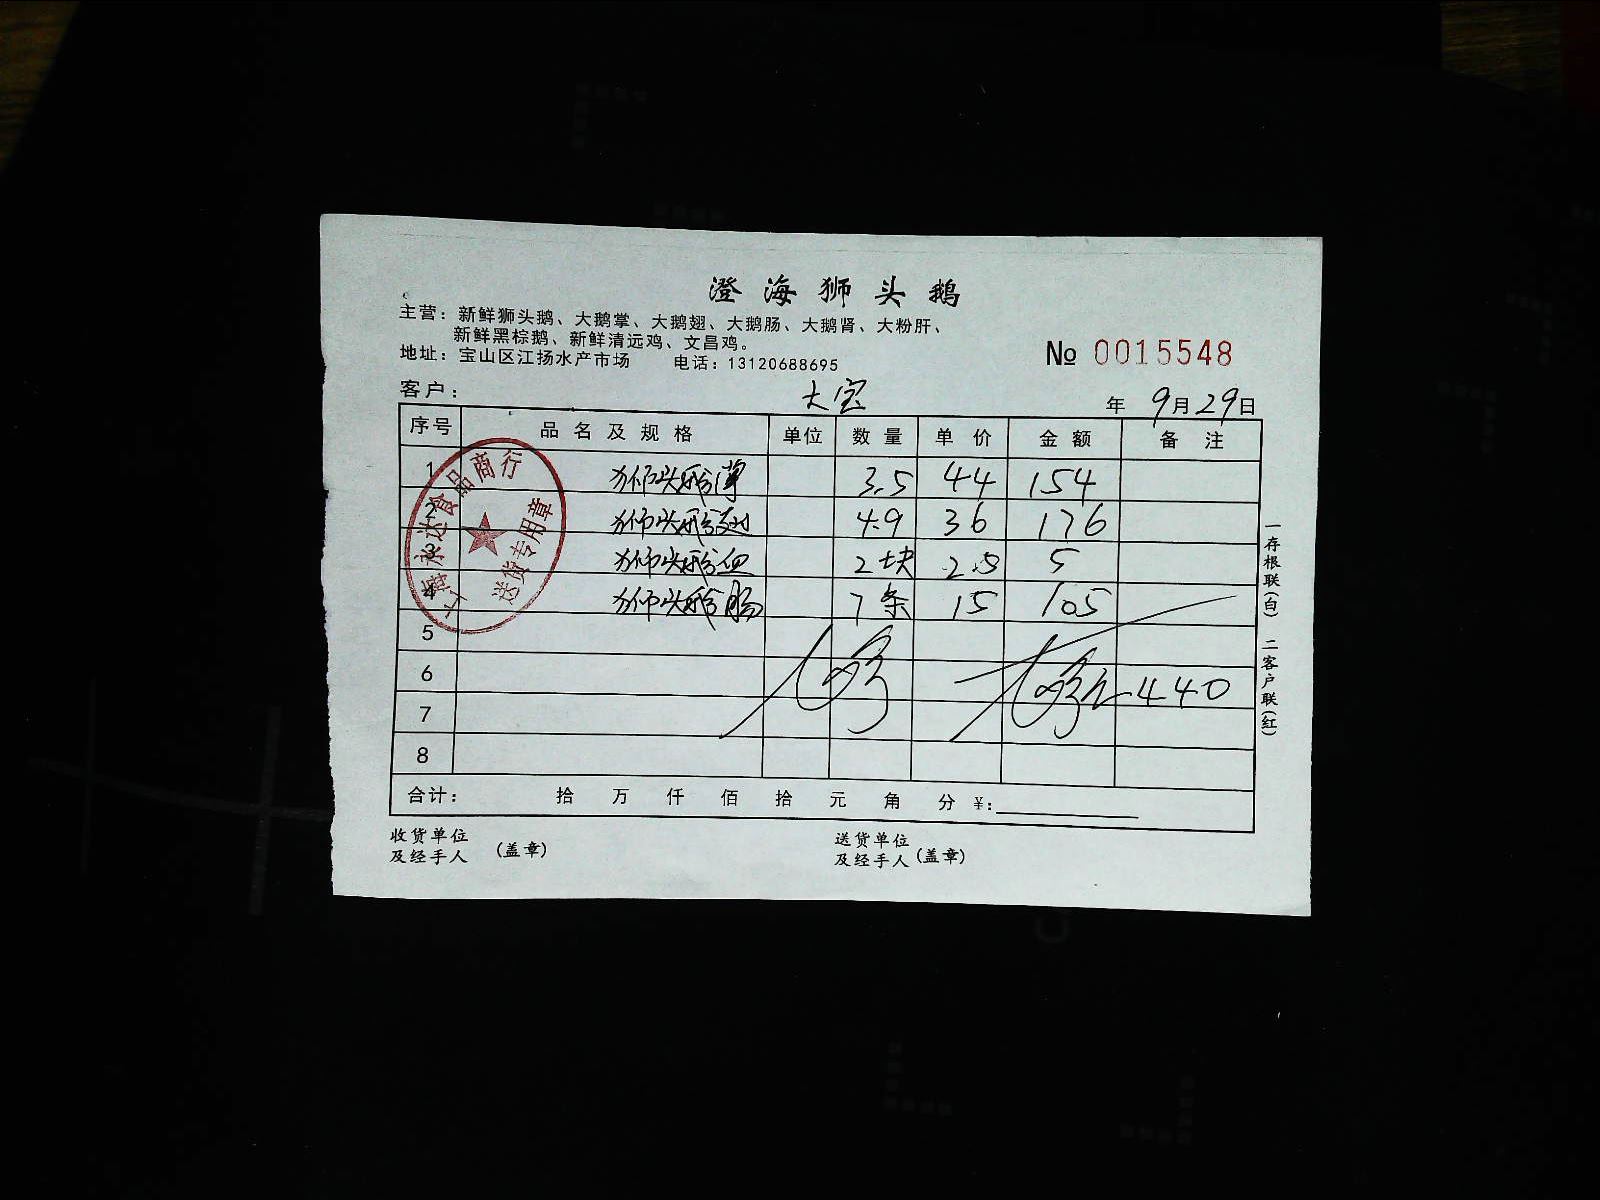 澄海狮头鹅
主营：新鲜狮头鹅、大鹅掌、大鹅翅、大鹅肠、大鹅肾、大粉肝、
新鲜黑棕鹅、新鲜清远鸡、文昌鸡。
地址：宝山区江扬水产市场 电话：13120688695
№ 0015548
客户： 大宝 年 9月29日
序号 品名及规格 单位 数量 单价 金额 备注
1 狮头鹅 3.5 44 154
2 狮头鹅翅 4.9 36 176
3 狮头鹅血 2块 2.5 5
4 狮头鹅肠 7条 15 105
5
6 440
7
8
合计： 拾 万 仟 佰 拾 元 角 分 ¥：
收货单位
及经手人 （盖章）
送货单位
及经手人（盖章）
一存根联（白） 二客户联（红）
上海永达食品商行
送货专用章